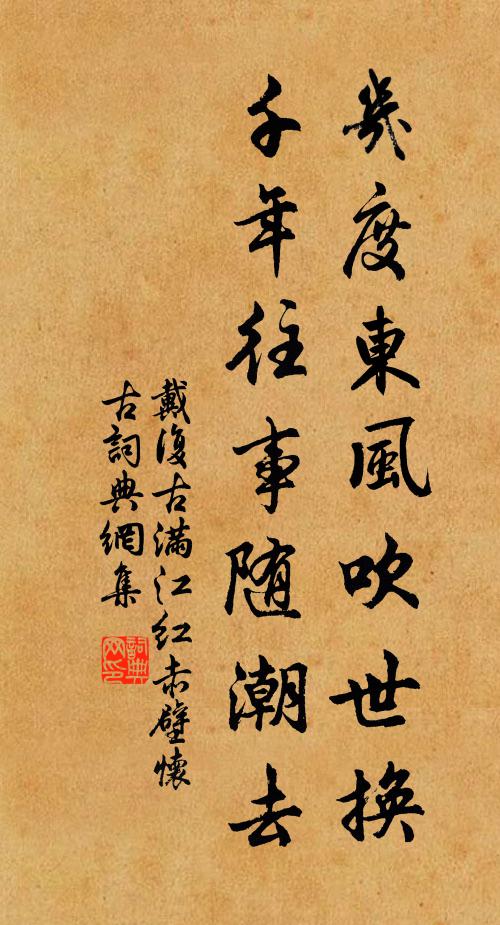 幾度東風吹世換
千年往事随潮去
戴復古满江红赤壁懷
古詞典網集
詞典
网印